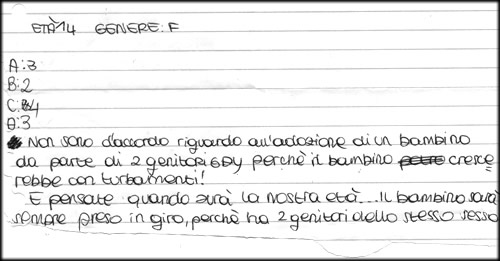 ETÀ14 GENERE: F
A: 3
B: 2
C: 4
D: 3
Non sono d'accordo riguardo all'adozione di un bambino
da parte di 2 genitori GAY perchè il bambino cresce
rebbe con turbamenti!
E pensate quando avrà la nostra età... Il bambino sarà
sempre preso in giro, perchè ha 2 genitori dello stesso sesso